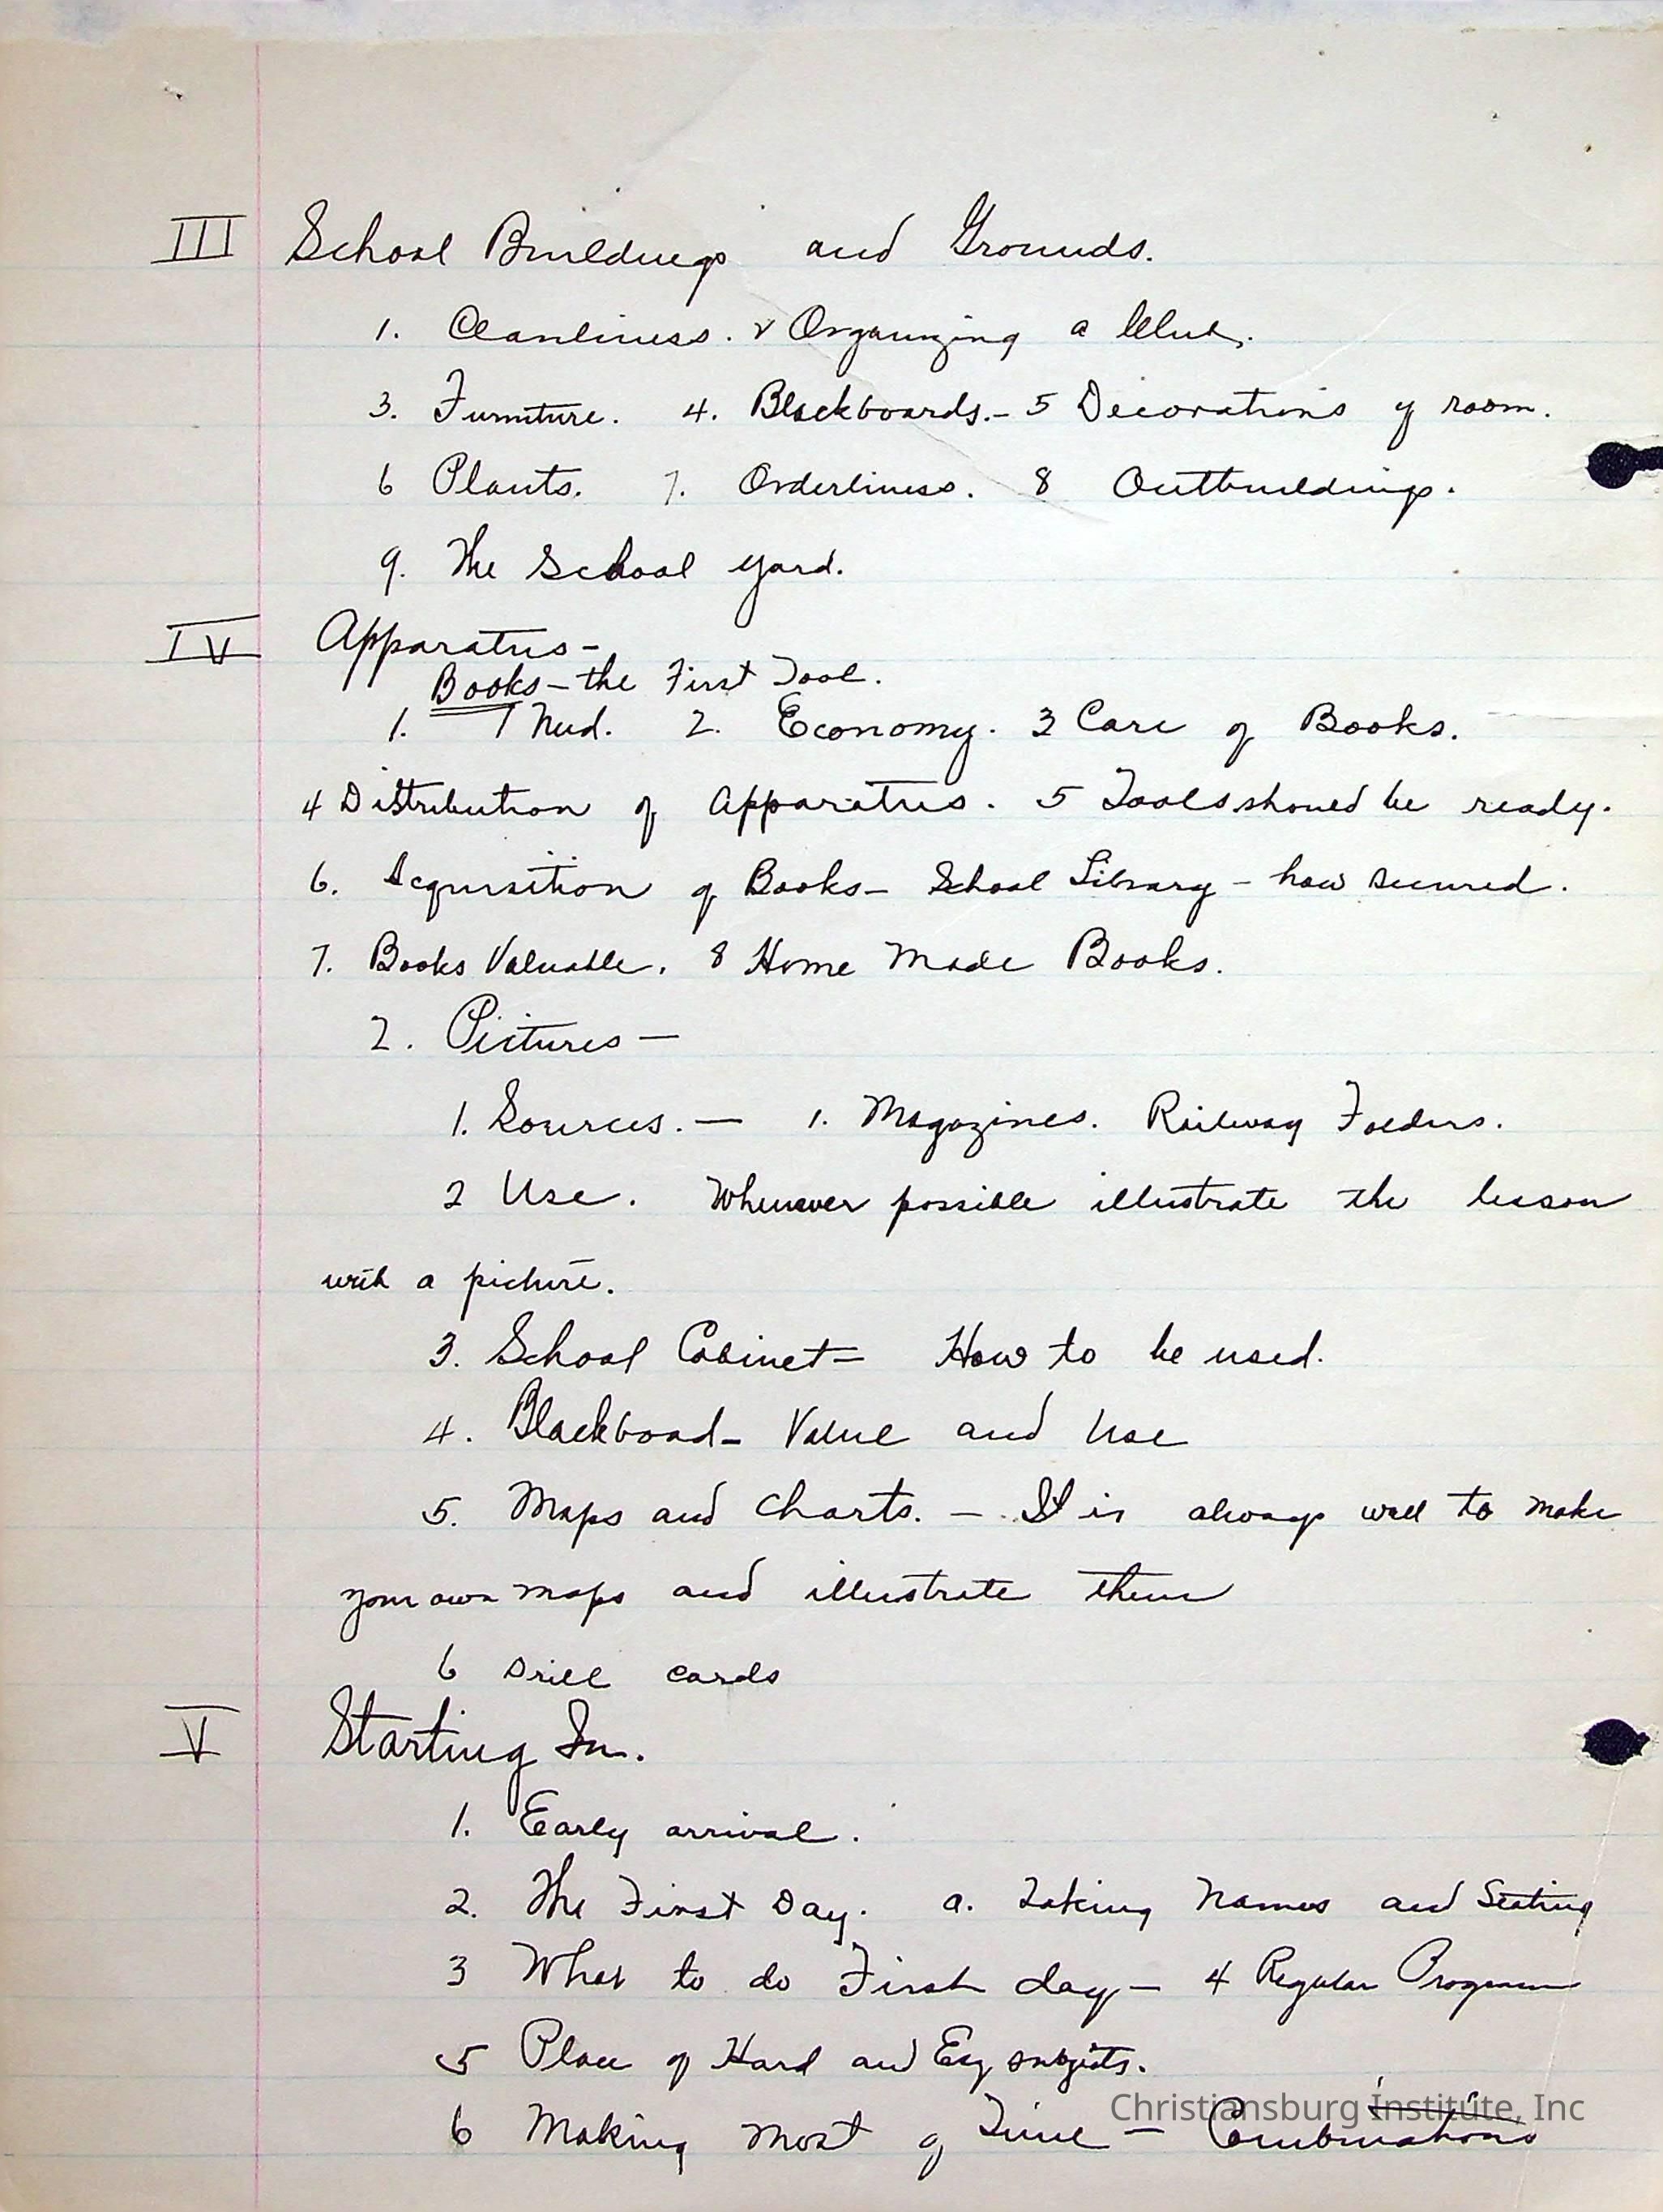 III School Buildings and Grounds.
1. Cleanliness. 2 Organizing a Club.
3. Furniture. 4. Blackboards.- 5 Decorations of room.
6 Plants. 7. Orderliness. 8 Outbuildings.
9. The School yard.
IV Apparatus-
Books-the First Tool.
1. 1 Need. 2. Economy. 3 Care of Books.
4 Distribution of Apparatus. 5 Tools should be ready.
6. Acquisition of Books- School Library - how secured.
7. Books Valuable. 8 Home Made Books.
2. Pictures-
1. Sources.- 1. Magazines. Railway Folders.
2 Use. Whenever possible illustrate the lesson
with a picture.
3. School Cabinet- How to be used.
4. Blackboad- Value and Use
5. Maps and Charts. - It is always well to make
your own maps and illustrate them
6 Drill cards
V Starting In.
1. Early arrival.
2. The First Day. a. Taking Names and Seating
3 What to do First day- 4 Regular Program
5 Place of Hard and Esy subjets.
6 Making most of Time - Combinations
Christiansburg Institute, Inc